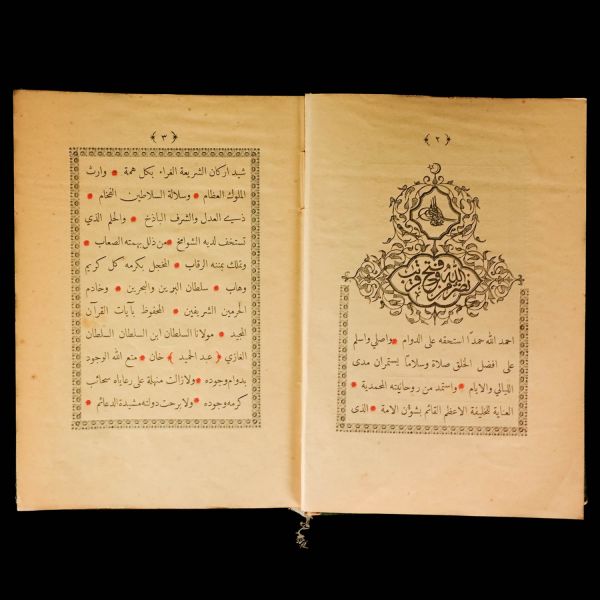 ﴿ ٢ ﴾
نصر من الله وفتح قريب
احمد الله حمدًا استحقه على الدوام * واصلي واسلم
على افضل الخلق صلاة وسلامًا يستمران مدى
الليالي والايام * واستمد من روحانيته المحمدية *
العناية للخليفة الاعظم القائم بشؤان الامة * الذى
﴿ ٣ ﴾
شيد اركان الشريعة الغراء بكل همة * وارث
الملوك العظام * وسلالة السلاطين الفخام *
ذي العدل والشرف الباذخ * والحلم الذي
تستخف لديه الشوامخ * من ذلل بهمته الصعاب *
وتملك بمننه الرقاب * المخجل بكرمه كل كريم
وهاب * سلطان البرين والبحرين * وخادم
الحرمين الشريفين * المحفوظ بآيات القرآن
المجيد * مولانا السلطان ابن السلطان السلطان
الغازي ﴿ عبد الحميد ﴾ خان * متع الله الوجود
بدوام وجوده * ولا زالت منهلة على رعاياه سحائب
كرمه وجوده * ولا برحت دولته مشيدة الدعائم *